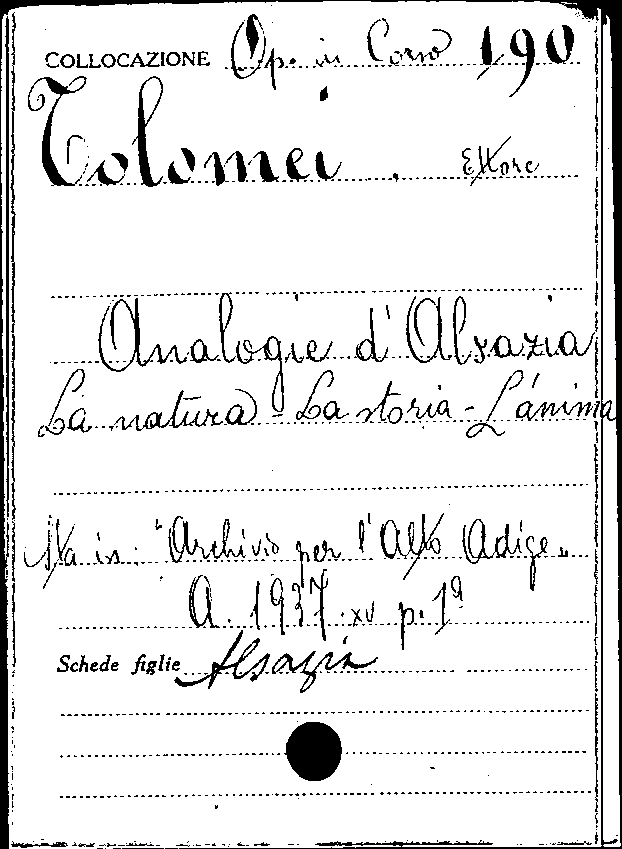 COLLOCAZIONE Op. in Corso 190
Tolomei. Ettore
Analogie d'Alsazia
La natura - La storia - L'ánima
Sta in: "Archivio per l'Alto Adige"
A. 1937. xv p. 1ª
Schede figlie Alsazia